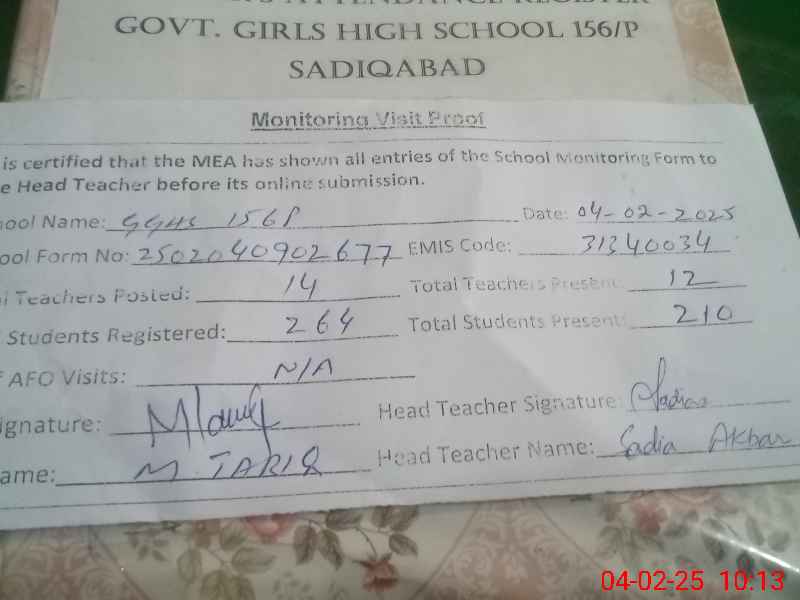 ATTENDANCE REGISTER
GOVT. GIRLS HIGH SCHOOL 156/P
SADIQABAD
Monitoring Visit Proof
is certified that the MEA has shown all entries of the School Monitoring Form to
e Head Teacher before its online submission.
hool Name: GGHS 156P Date: 04-02-2025
ool Form No: 2502040902677 EMIS Code: 31340034
l Teachers Posted: 14 Total Teachers Present: 12
Students Registered: 264 Total Students Present: 210
f AFO Visits: N/A
ignature: Head Teacher Signature: Sadia
ame: M. TARIQ Head Teacher Name: Sadia Akbar
04-02-25 10:13